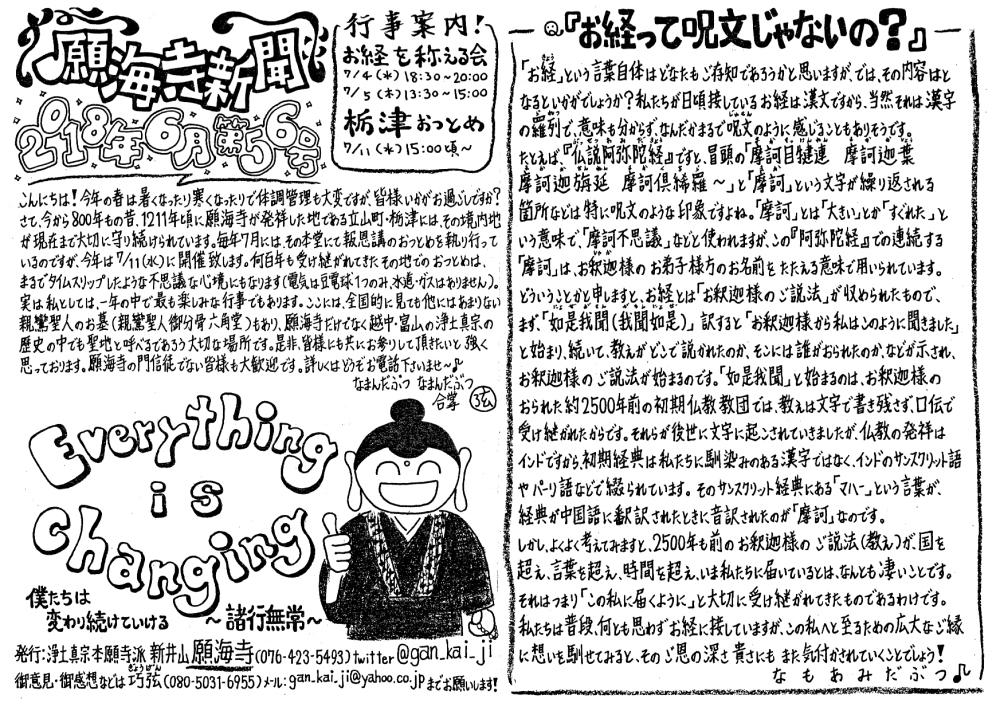 願海寺新聞
2018年6月第56号
行事案内!
お経を称える会
7/4(水)18:30~20:00
7/5(木)13:30~15:00
栃津おつとめ
7/11(水)15:00頃~
こんにちは!今年の春は暑くなったり寒くなったりで体調管理も大変ですが、皆様いかがお過ごしですか?
さて、今から800年もの昔、1211年頃に願海寺が発祥した地である立山町・栃津には、その境内地
が現在まで大切に守り続けられています。毎年7月には、その本堂にて報恩講のおつとめを執り行って
いるのですが、今年は7/11(水)に開催致します。何百年も受け継がれてきたその地でのおつとめは、
まるでタイムスリップしたような不思議な心境にもなります(電気は豆電球1つのみ、水道・ガスはありません)。
実は私としては、一年の中で最も楽しみな行事でもあります。ここには、全国的に見ても他にはあまりない
親鸞聖人のお墓(親鸞聖人御分骨六角堂)もあり、願海寺だけでなく越中・富山の浄土真宗の
歴史の中でも聖地と呼べるであろう大切な場所です。是非、皆様にも共にお参りして頂きたいと強く
思っております。願海寺の門信徒でない皆様も大歓迎です。詳しくはどうぞお電話下さいませ~♪
なまんだぶつ なまんだぶつ
合掌 弦
Everything
is
changing
僕たちは
変わり続けていける
~諸行無常~
発行:浄土真宗本願寺派 新井山 願海寺(076-423-5493)twitter@gan_kai_ji
御意見・御感想などは 巧弦(080-5031-6955)メール:gan_kai_ji@yahoo.co.jpまでお願いします!
『お経って呪文じゃないの?』
「お経」という言葉自体はどなたもご存知であろうかと思いますが、では、その内容はと
なるといかがでしょうか?私たちが日頃接しているお経は漢文ですから、当然それは漢字
の羅列で、意味も分からず、なんだかまるで呪文のように感じることもありそうです。
たとえば、『仏説阿弥陀経』ですと、冒頭の「摩訶目犍連 摩訶迦葉
摩訶迦旃延 摩訶倶絺羅~」と「摩訶」という文字が繰り返される
箇所などは特に呪文のような印象ですよね。「摩訶」とは「大きい」とか「すぐれた」と
いう意味で、「摩訶不思議」などと使われますが、この『阿弥陀経』での連続する
「摩訶」は、お釈迦様のお弟子様方のお名前をたたえる意味で用いられています。
どういうことかと申しますと、お経とは「お釈迦様のご説法」が収められたもので、
まず、「如是我聞(我聞如是)」訳すると「お釈迦様から私はこのように聞きました」
と始まり、続いて、教えがどこで説かれたのか、そこには誰がおられたのか、などが示され、
お釈迦様のご説法が始まるのです。「如是我聞」と始まるのは、お釈迦様の
おられた約2500年前の初期仏教教団では、教えは文字で書き残さず、口伝で
受け継がれたからです。それらが後世に文字に起こされていきましたが、仏教の発祥は
インドですから、初期経典は私たちに馴染みのある漢字ではなく、インドのサンスクリット語
やパーリ語などで綴られています。そのサンスクリット経典にある「マハー」という言葉が、
経典が中国語に翻訳されたときに音訳されたのが「摩訶」なのです。
しかし、よくよく考えてみますと、2500年も前のお釈迦様のご説法(教え)が、国を
超え、言葉を超え、時間を超え、いま私たちに届いているとは、なんとも凄いことです。
それはつまり「この私に届くように」と大切に受け継がれてきたものであるわけです。
私たちは普段、何とも思わずお経に接していますが、この私へと至るための広大なご縁
に想いを馳せてみると、そのご恩の深さ貴さにもまた気付かされていくことでしょう!
なもあみだぶつ♪